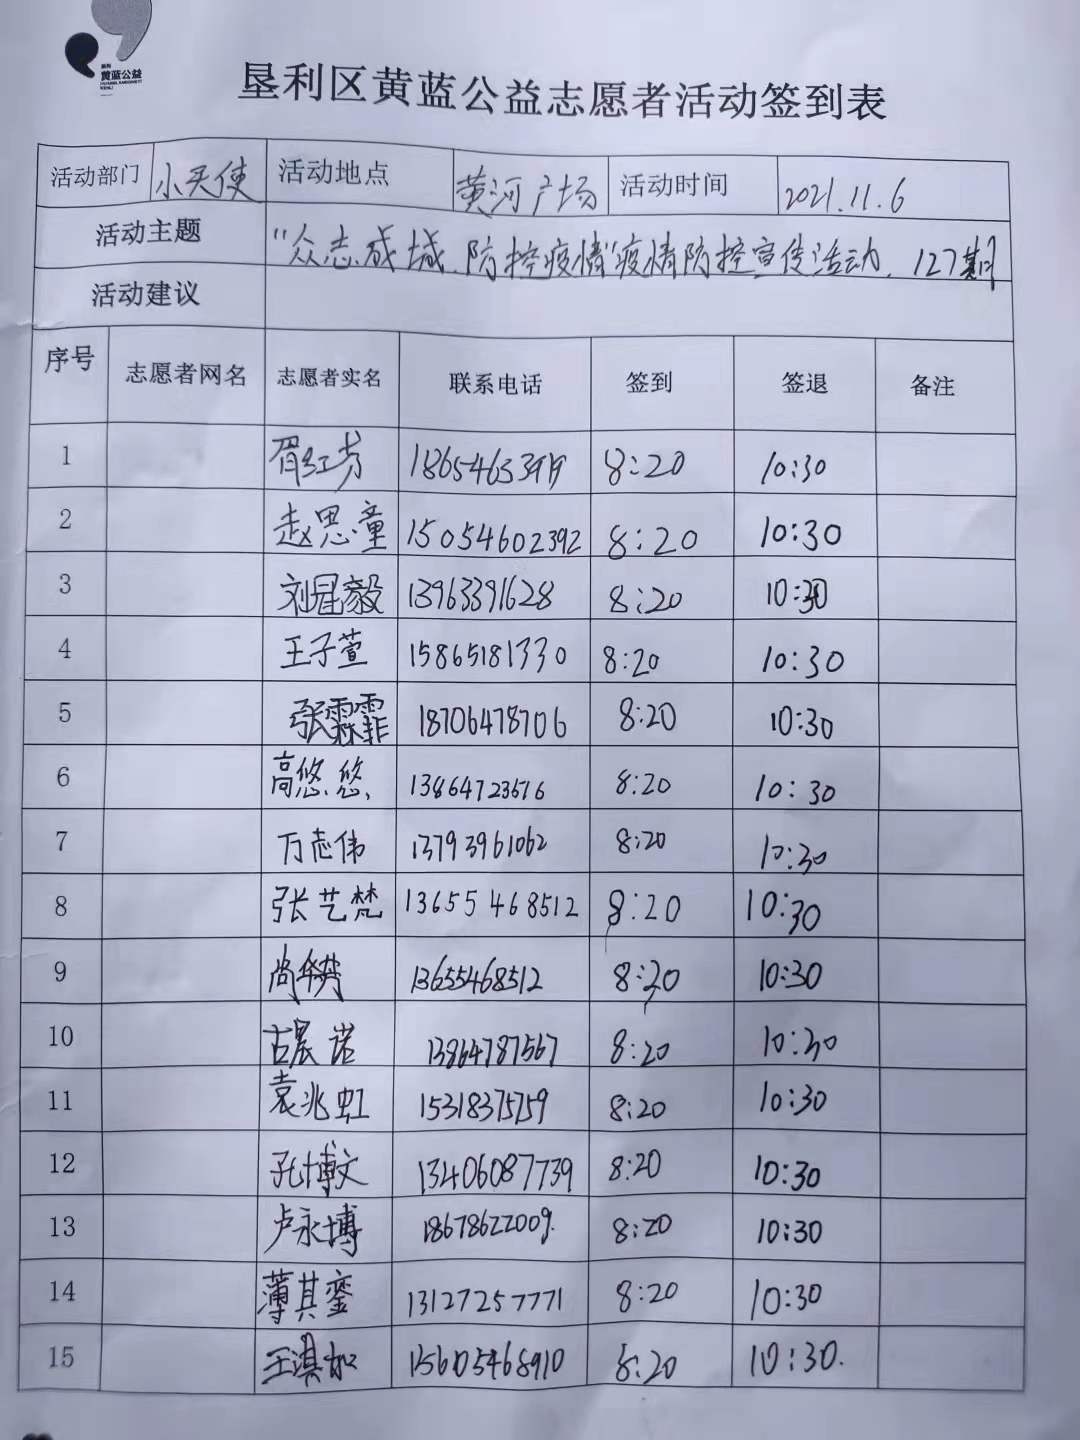 黄蓝公益
垦利区黄蓝公益志愿者活动签到表
活动部门 小天使 活动地点 黄河广场 活动时间 2021.11.6
活动主题 "众志成城.防控疫情"疫情防控宣传活动.127期
活动建议
序号 志愿者网名 志愿者实名 联系电话 签到 签退 备注
1 胥红芳 8:20 10:30
2 赵思童 15054602392 8:20 10:30
3 刘冠毅 13963391628 8:20 10:30
4 王子萱 15865181330 8:20 10:30
5 张霖霏 18706478706 8:20 10:30
6 高悠悠 8:20 10:30
7 万志伟 13793961062 8:20 10:30
8 张艺梵 13655468512 8:20 10:30
9 13655468512 8:20 10:30
10 古晨诺 13864787567 8:20 10:30
11 袁兆虹 15318375759 8:20 10:30
12 孔博文 13406087739 8:20 10:30
13 卢永博 18678622009. 8:20 10:30
14 薄其銮 13127257771 8:20 10:30
15 王淇如 8:20 10:30.